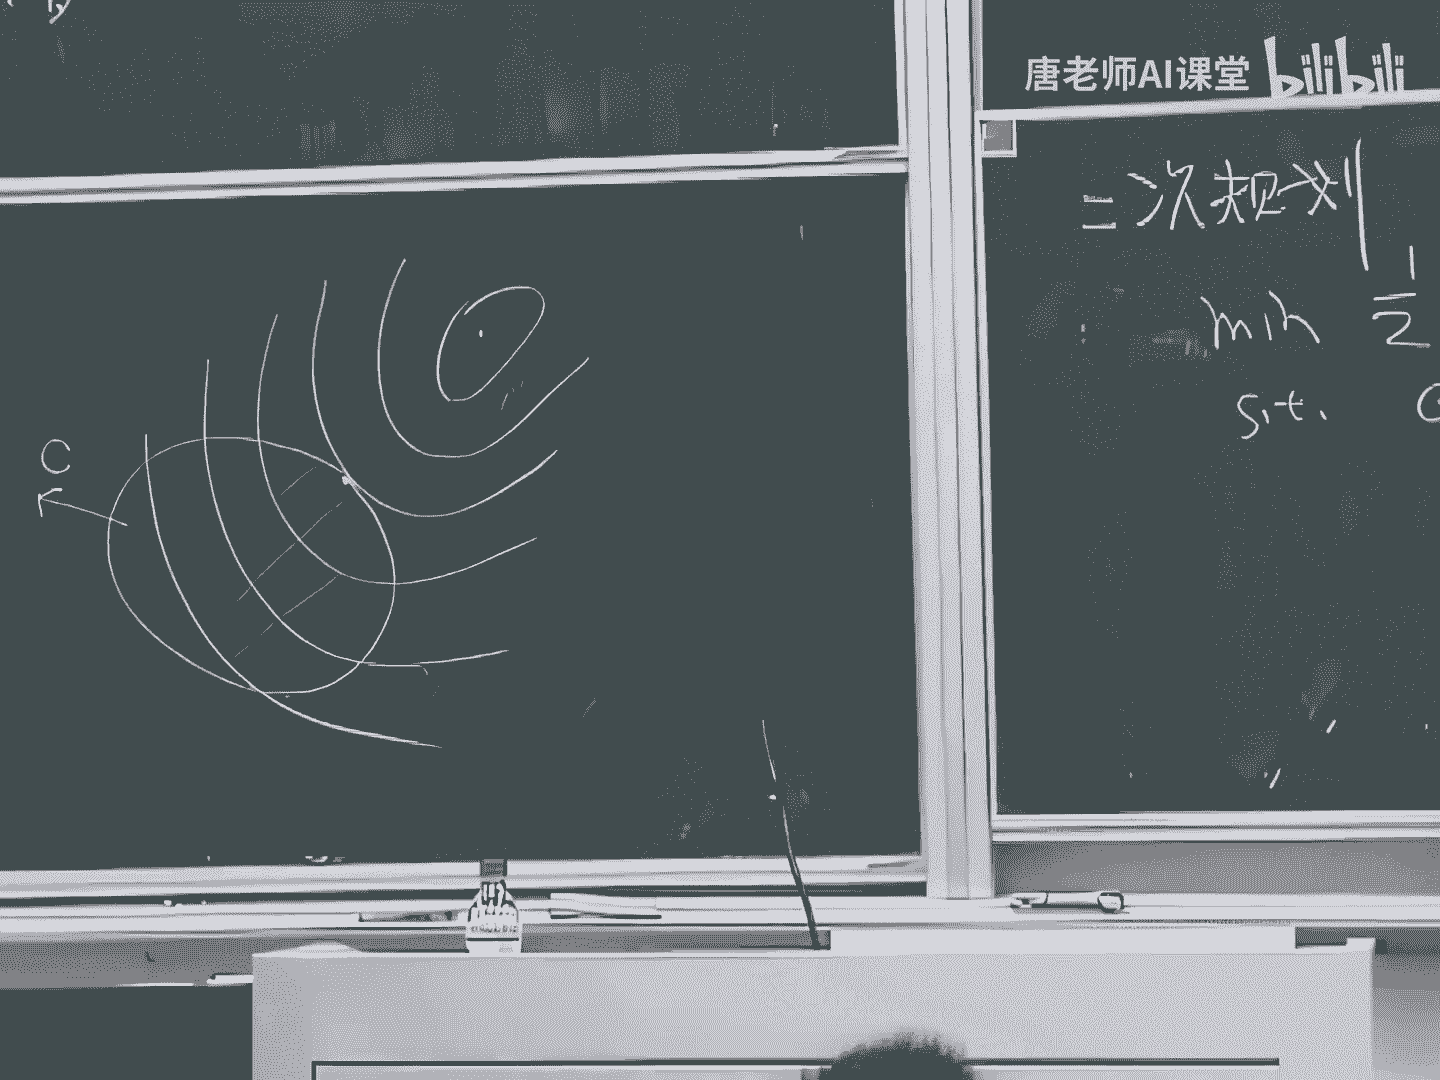 唐老师AI课堂 bilibili
C
二次规划
min 1/2
s.t.